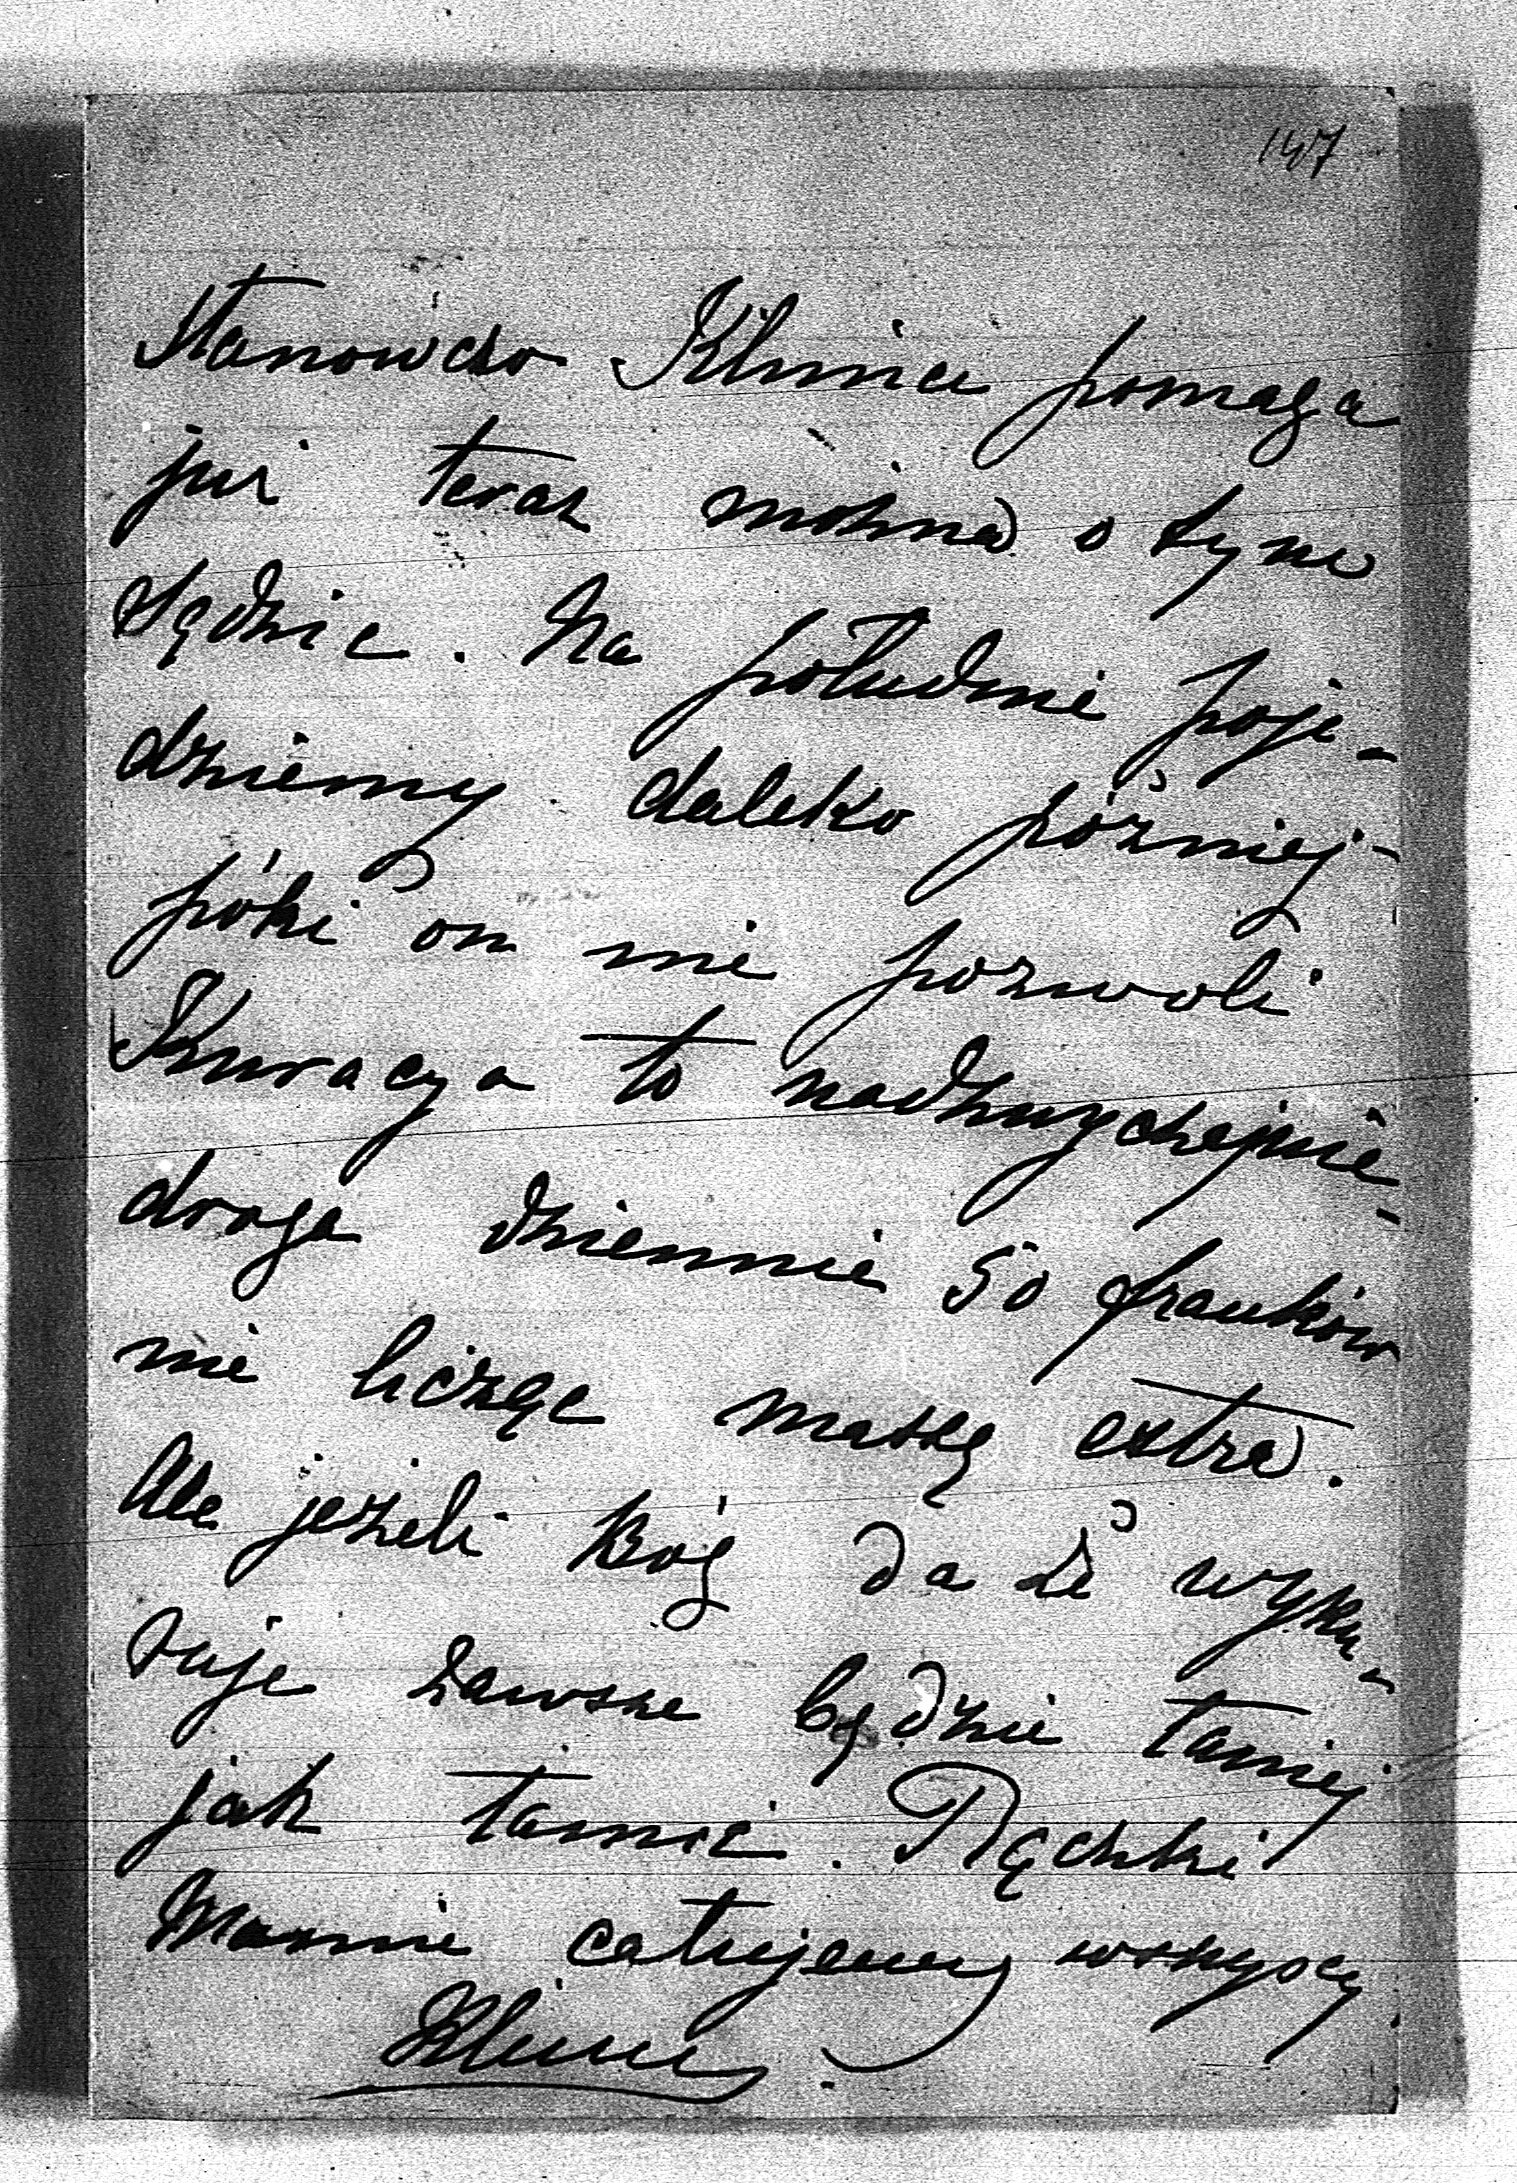 147
Stanowczo Klimci pomaga
już teraz można o tym
sądzić. Na południe poje-
dziemy daleko później-
póki on nie pozwoli
Kuracya to nadzwyczajnie-
droga dziennie 50 franków
nie licząc maszę extra.
Ale jeżeli Bóg da że wyku-
ruje zawsze będzie taniej
jak tannie. Rączki
Mamie całujemy wszyscy